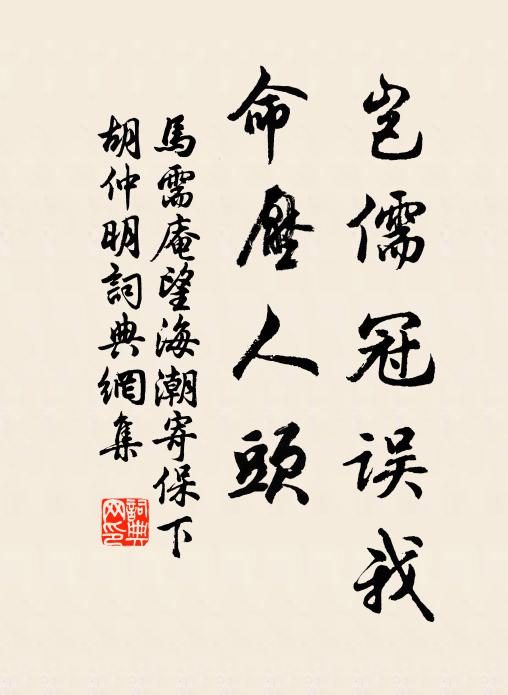 豈儒冠誤我
命壓人頭
馬需庵望海潮寄保下
胡仲明詞典網集
詞典
网印